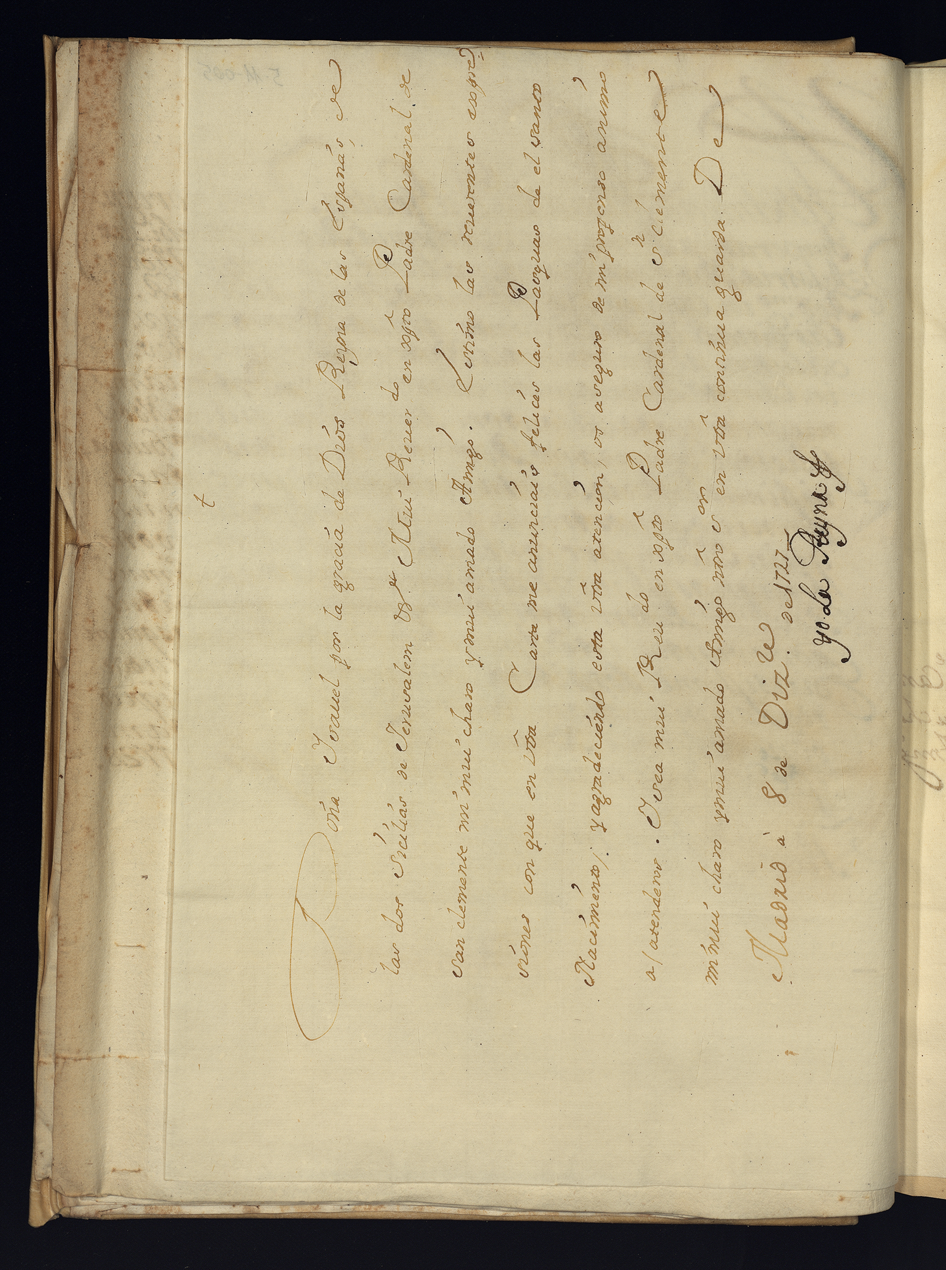 t
Doña Isavel por la gracia de Dios Reyna de las Españas, de
las dos Sicilias de Jerusalem &ª Mui Rever.do en xpto Padre Cardenal de
San Clemente mi mui charo y mui amado Amigo. Estimo las reverentes expre
siones con que en vra Carta me anunciais felices las Pasquas de el santo
Nacimiento; y agradeciendo esta vra atencion, os aseguro de mi propenso animo
a atenderos. I sea mui Reu.do en xpto Padre Cardenal de S.n Clemente
mi mui charo y mui amado Amigo nro s.or en vra continua guarda. De
Madrid à 8 de Diz.re de 1727
yo La Reyna